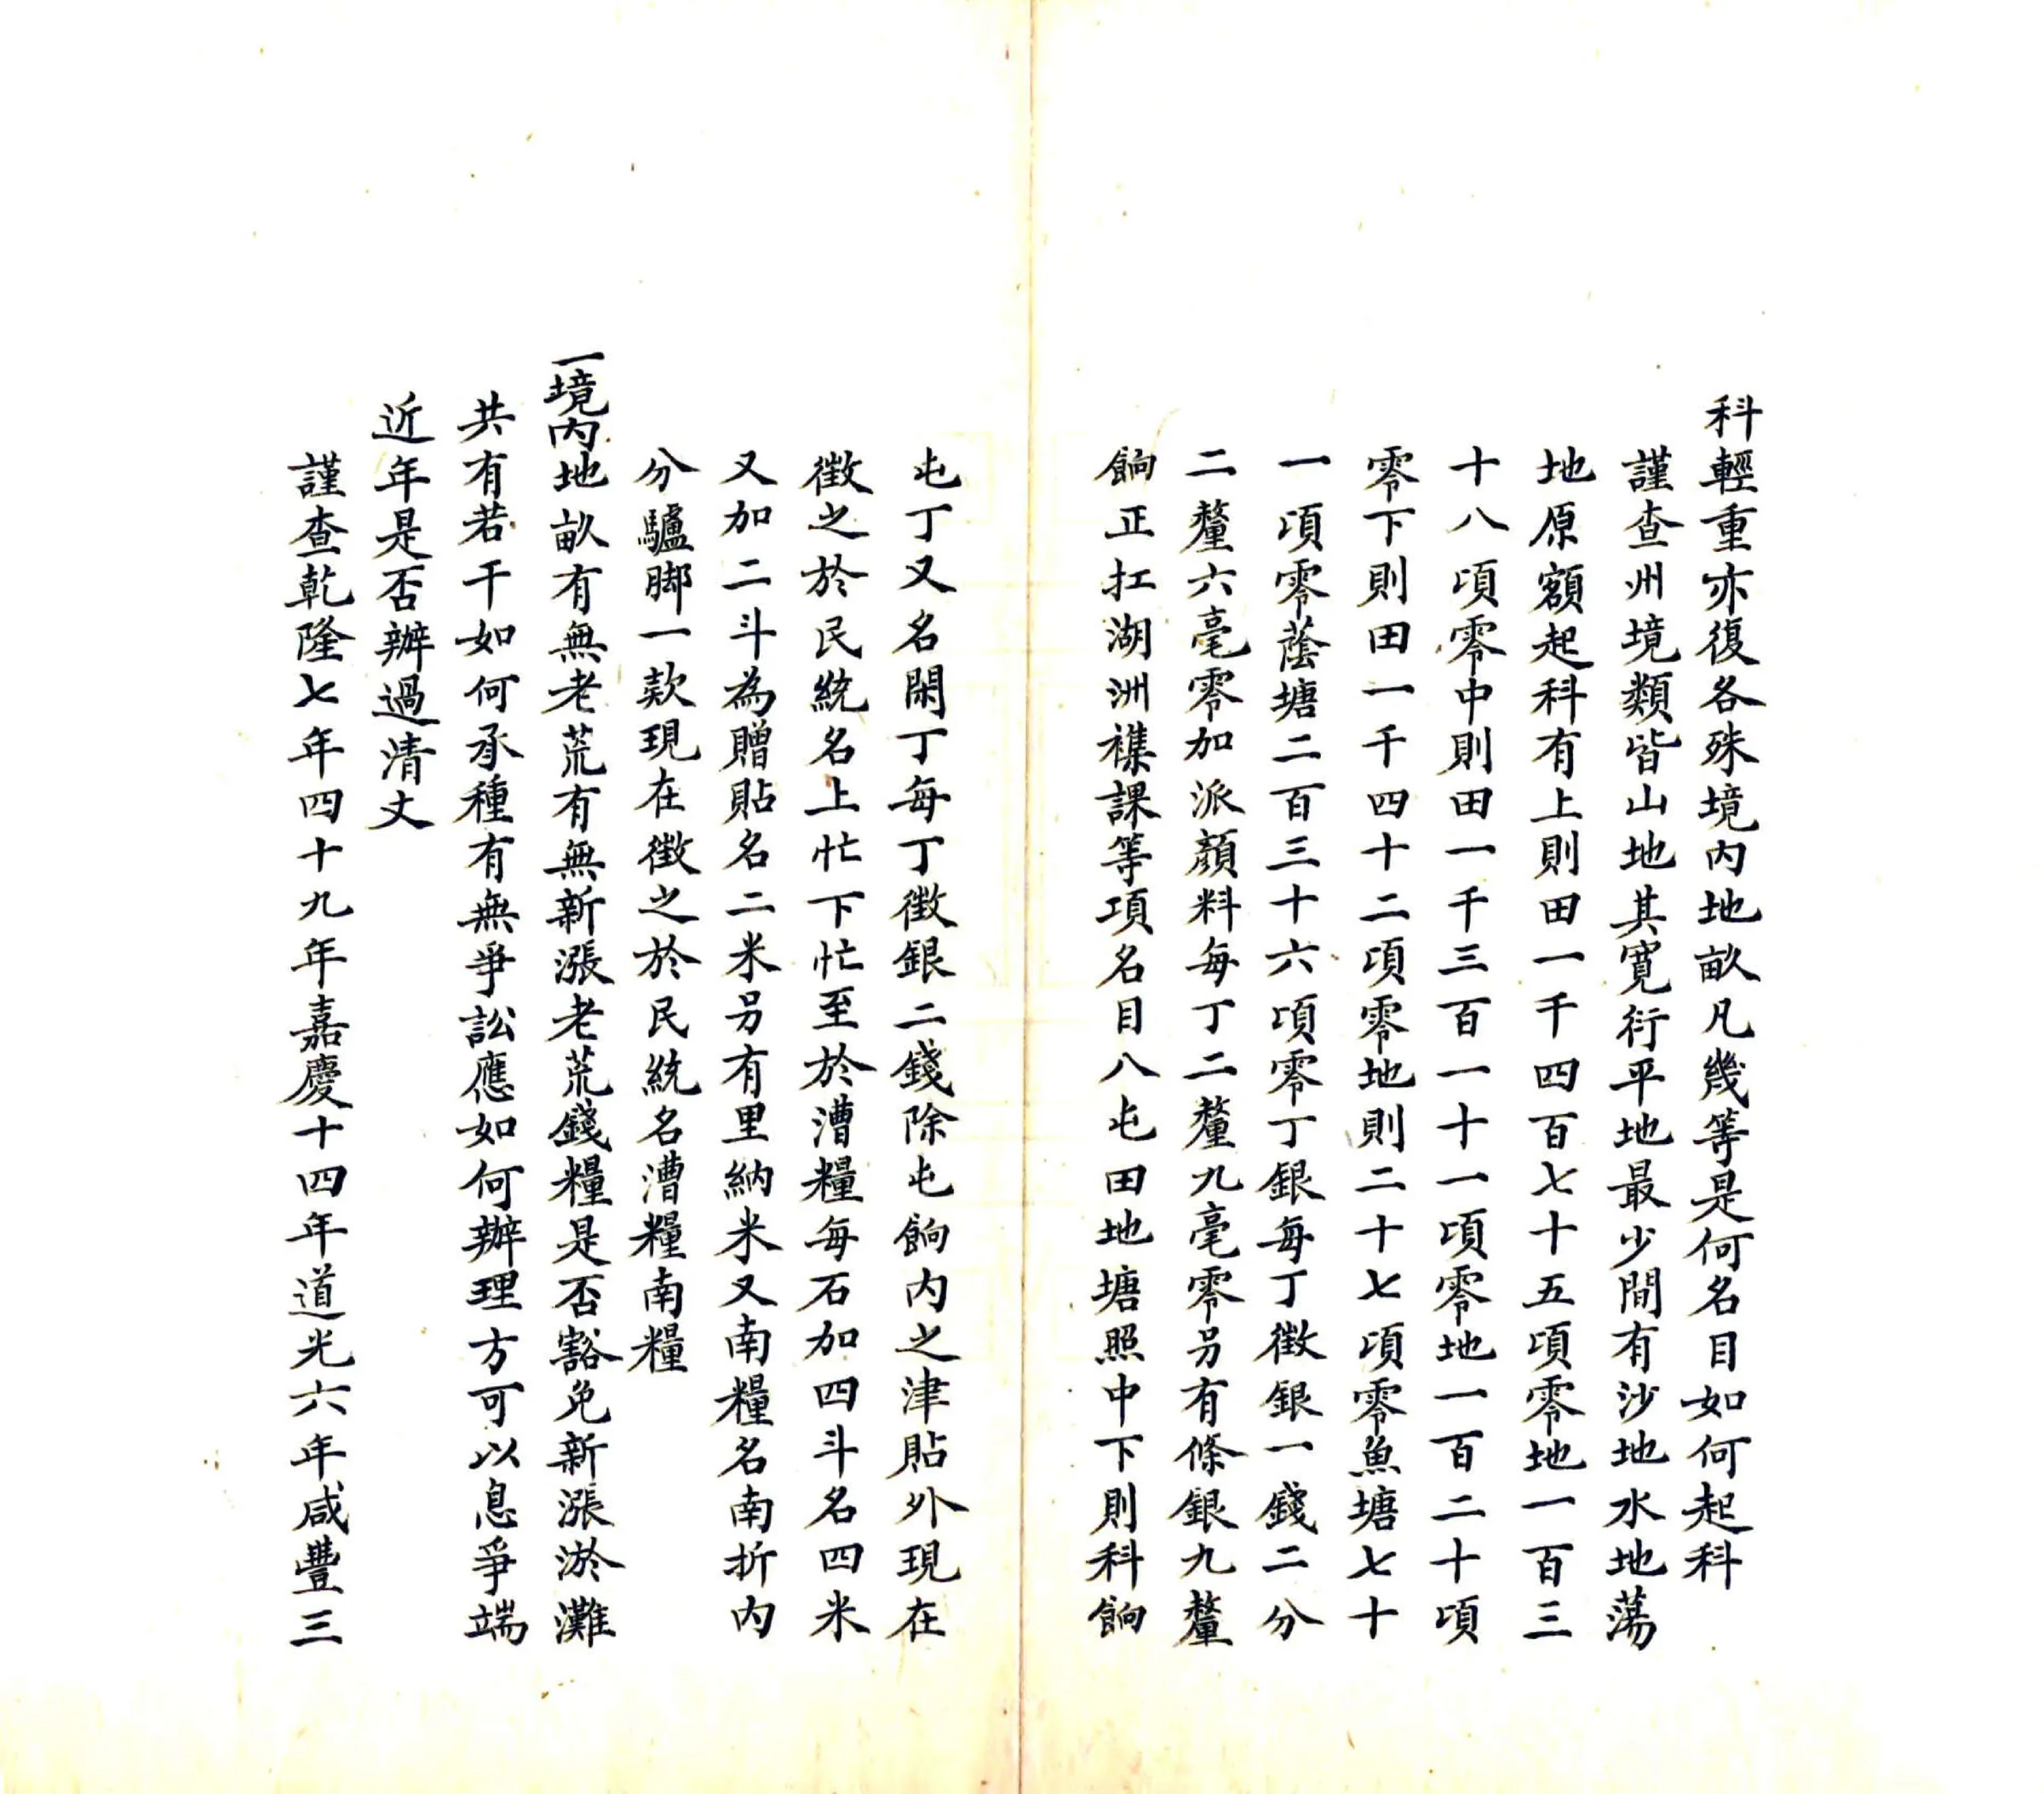 科輕重亦復各殊境内地畝凡幾等是何名目如何起科
謹查州境類皆山地其寬衍平地最少間有沙地水地蕩
地原額起科有上則田一千四百七十五項零地一百三
十八項零中則田一千三百一十一項零地一百二十項
零下則田一千四十二項零地則二十七項零魚塘七十
一項零蔭塘二百三十六項零丁銀每丁徵銀一錢二分
二釐六毫零加派顏料每丁二釐九毫零另有條銀九釐
餉正扛湖洲襍課等項名目八屯田地塘照中下則科餉
屯丁又名閑丁每丁徵銀二錢除屯餉内之津貼外現在
徵之於民統名上忙下忙至於漕糧每石加四斗名四米
又加二斗為贈貼名二米另有里納米又南糧名南折内
分驢脚一款現在徵之於民統名漕糧南糧
一境内地畝有無老荒有無新漲老荒錢糧是否豁免新漲淤灘
共有若干如何承種有無爭訟應如何辦理方可以息爭端
近年是否辦過清丈
謹查乾隆七年四十九年嘉慶十四年道光六年咸豐三